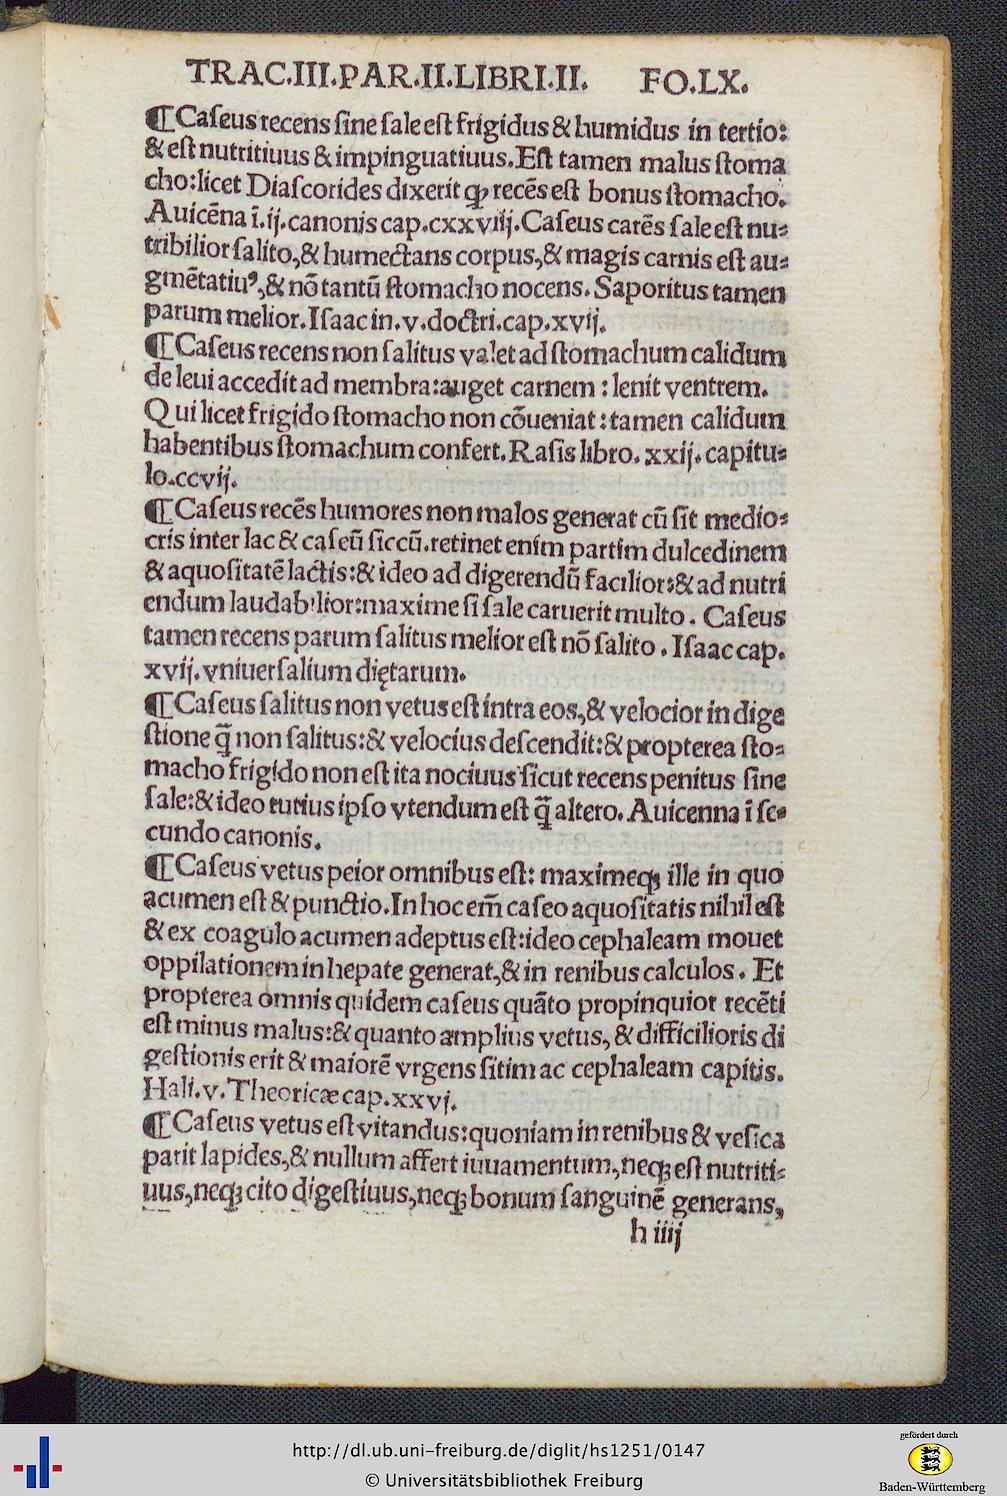 TRAC.III.PAR.II.LIBRI.II. FO.LX.
¶Caſeus recens ſine ſale eſt frigidus & humidus in tertio:
& eſt nutritiuus & impinguatiuus. Eſt tamen malus ſtoma
cho: licet Diaſcorides dixerit ꝙ recēs eſt bonus ſtomacho.
Auicēna ī.ij.canonis cap.cxxviij. Caſeus carēs ſale eſt nu⸗
tribilior ſalito, & humectans corpus, & magis carnis eſt au⸗
gmētatiuꝰ, & nō tantū ſtomacho nocens. Saporitus tamen
parum melior. Iſaac in.v.doctri.cap.xvij.
¶Caſeus recens non ſalitus valet ad ſtomachum calidum
de leui accedit ad membra: auget carnem: lenit ventrem.
Qui licet frigido ſtomacho non cōueniat: tamen calidum
habentibus ſtomachum confert. Raſis libro. xxij. capitu⸗
lo.ccvij.
¶Caſeus recēs humores non malos generat cū ſit medio⸗
cris inter lac & caſeū ſiccū. retinet enim partim dulcedinem
& aquoſitatē lactis: & ideo ad digerendū facilior: & ad nutri
endum laudabilior: maxime ſi ſale caruerit multo. Caſeus
tamen recens parum ſalitus melior eſt nō ſalito. Iſaac cap.
xvij. vniuerſalium diętarum.
¶Caſeus ſalitus non vetus eſt intra eos, & velocior in dige
ſtione q̄ non ſalitus: & velocius deſcendit: & propterea ſto⸗
macho frigido non eſt ita nociuus ſicut recens penitus ſine
ſale: & ideo tutius ipſo vtendum eſt q̄ altero. Auicenna ī ſe⸗
cundo canonis.
¶Caſeus vetus peior omnibus eſt: maximeqꝫ ille in quo
acumen eſt & punctio. In hoc em̄ caſeo aquoſitatis nihil eſt
& ex coagulo acumen adeptus eſt: ideo cephaleam mouet
oppilationem in hepate generat, & in renibus calculos. Et
propterea omnis quidem caſeus quāto propinquior recēti
eſt minus malus: & quanto amplius vetus, & difficilioris di
geſtionis erit & maiorē vrgens ſitim ac cephaleam capitis.
Hali.v.Theoricæ cap.xxvj.
¶Caſeus vetus eſt vitandus: quoniam in renibus & veſica
parit lapides, & nullum affert iuuamentum, neqꝫ eſt nutriti⸗
uus, neqꝫ cito digeſtiuus, neqꝫ bonum ſanguinē generans,
h iiij
http://dl.ub.uni-freiburg.de/diglit/hs1251/0147
© Universitätsbibliothek Freiburg
gefördert durch
Baden-Württemberg